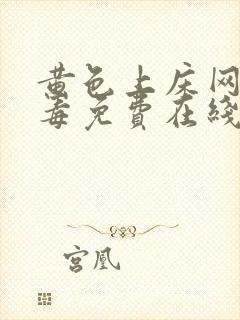 黄色上床网
毒免費在綫
宫凰